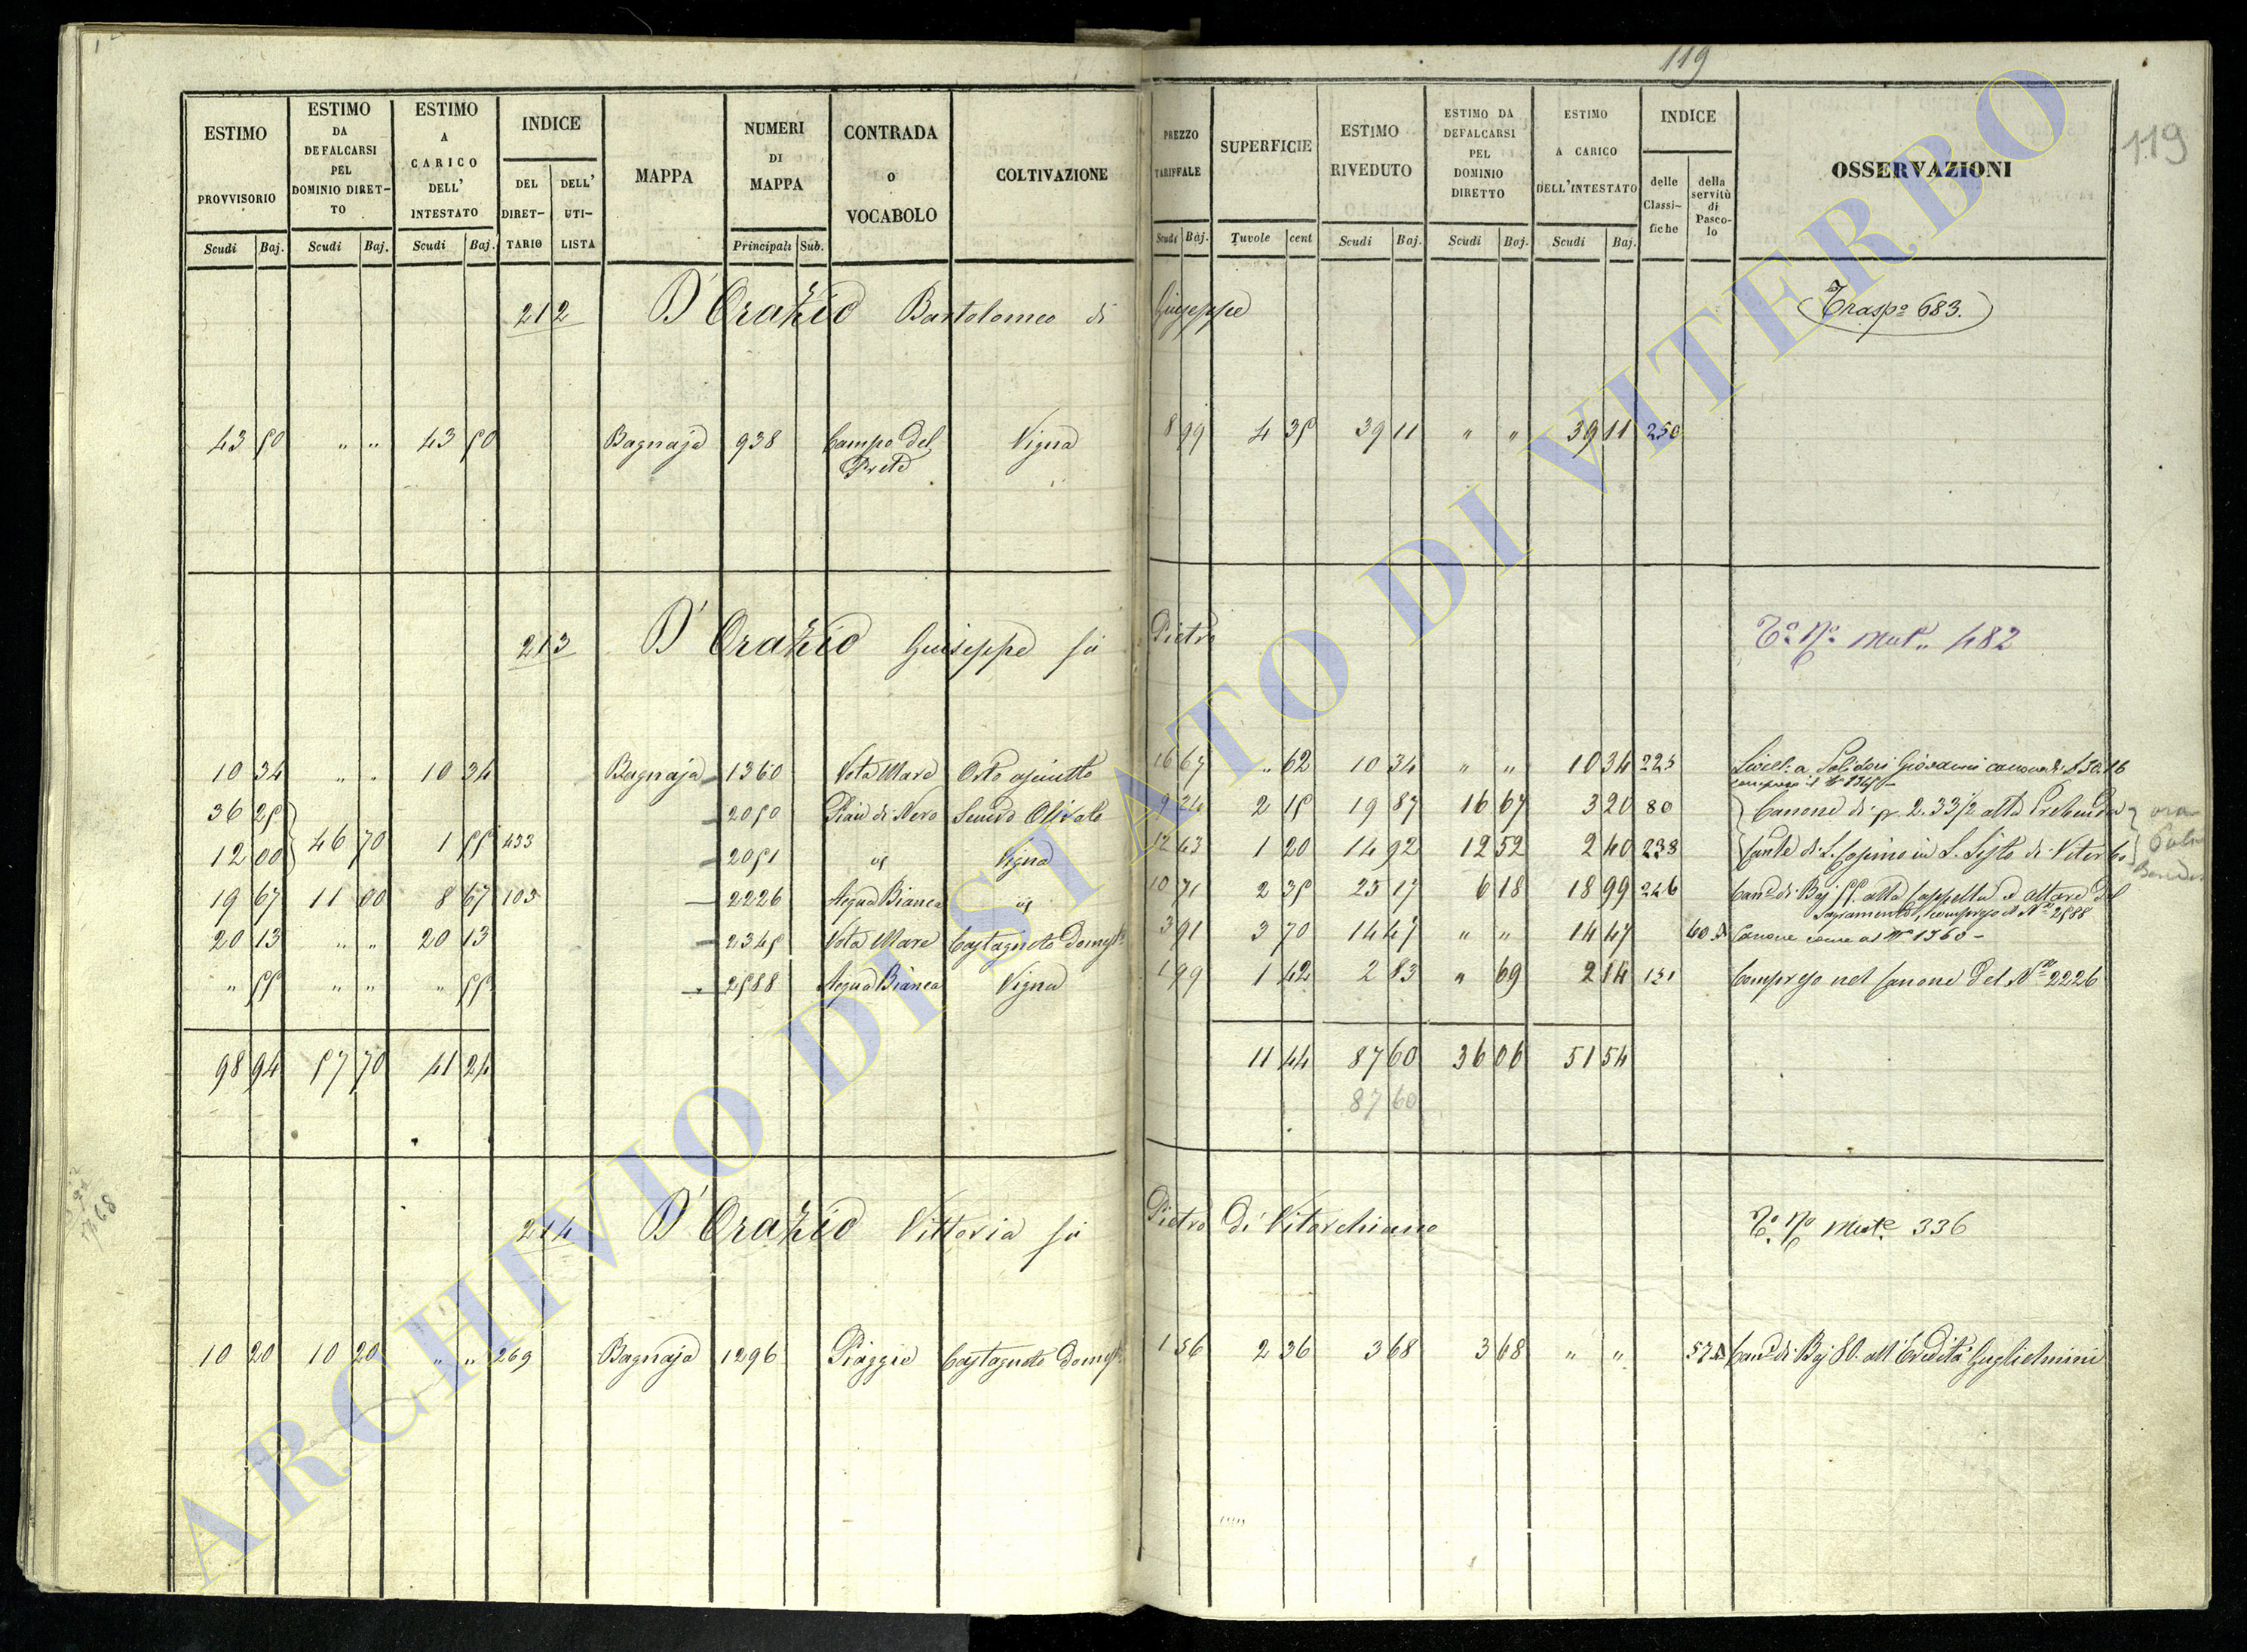 119
119
ESTIMO PROVVISORIO Scudi Baj.
ESTIMO DA DEFALCARSI PEL DOMINIO DIRETTO Scudi Baj.
ESTIMO A CARICO DELL' INTESTATO Scudi Baj.
INDICE DEL DIRETTARIO DELL' UTILISTA
MAPPA
NUMERI DI MAPPA Principali Sub.
CONTRADA o VOCABOLO
COLTIVAZIONE
PREZZO TARIFFALE Scudi Baj.
SUPERFICIE Tavole cent
ESTIMO RIVEDUTO Scudi Baj.
ESTIMO DA DEFALCARSI PEL DOMINIO DIRETTO Scudi Baj.
ESTIMO A CARICO DELL'INTESTATO Scudi Baj.
INDICE delle Classifiche della servitù di Pascolo
OSSERVAZIONI
212 D'Orazio Bartolomeo di Giuseppe Traspo 683.
43 50 " " 43 50 Bagnaja 938 Campo del Prete Vigna 8 99 4 35 39 11 " " 39 11 250
213 D'Orazio Giuseppe fu Pietro To No Mut. 482
10 34 " " 10 34 Bagnaja 1360 Vota Mare Orto asciutto 16 67 " 62 10 34 " " 10 34 223 Livell. a Polidori Giovanni canone di
36 25 2050 Pian di Nero Semvo Olivato 9 24 2 15 19 87 16 67 3 20 80 Canone di p. 2.33 1/2 alla Prebenda ora
12 00 46 70 1 55 433 2051 id Vigna 12 43 1 20 14 92 12 52 2 40 238 in S. Sisto di Viterbo
19 67 11 00 8 67 103 2226 Acqua Bianca id 10 71 2 35 25 17 6 18 18 99 226 Cane di Baj 55. alla Cappella o altare del
Sagramento, compreso il No 2588
20 13 " " 20 13 2345 Vota Mare Castagneto Domesto 3 91 3 70 14 47 " " 14 47 40 Canone come al No 1360
" 55 " " " 55 2588 Acqua Bianca Vigna 1 99 1 42 2 83 " 69 2 14 131 Compreso nel Canone del No 2226
98 94 57 70 41 24 11 44 87 60 36 06 51 54
87 60
214 D'Orazio Vittoria fu Pietro di Vitorchiano To No Mute 336
10 20 10 20 " " 269 Bagnaja 1296 Piaggie Castagneto Domesto 1 56 2 36 3 68 3 68 " " 57 Cane di Baj 80. all'Eredità Guglielmini
ARCHIVIO DI STATO DI VITERBO